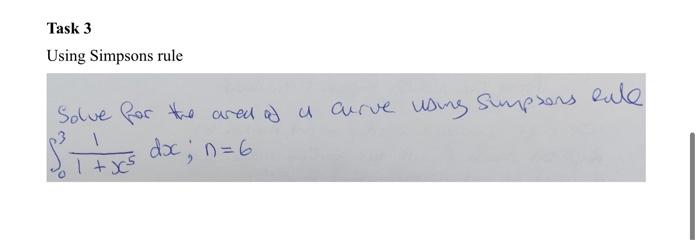 Task 3
Using Simpsons rule
Solve for the area of a curve using simpsons rule
∫₀³ 1/(1+x⁵) dx; n=6